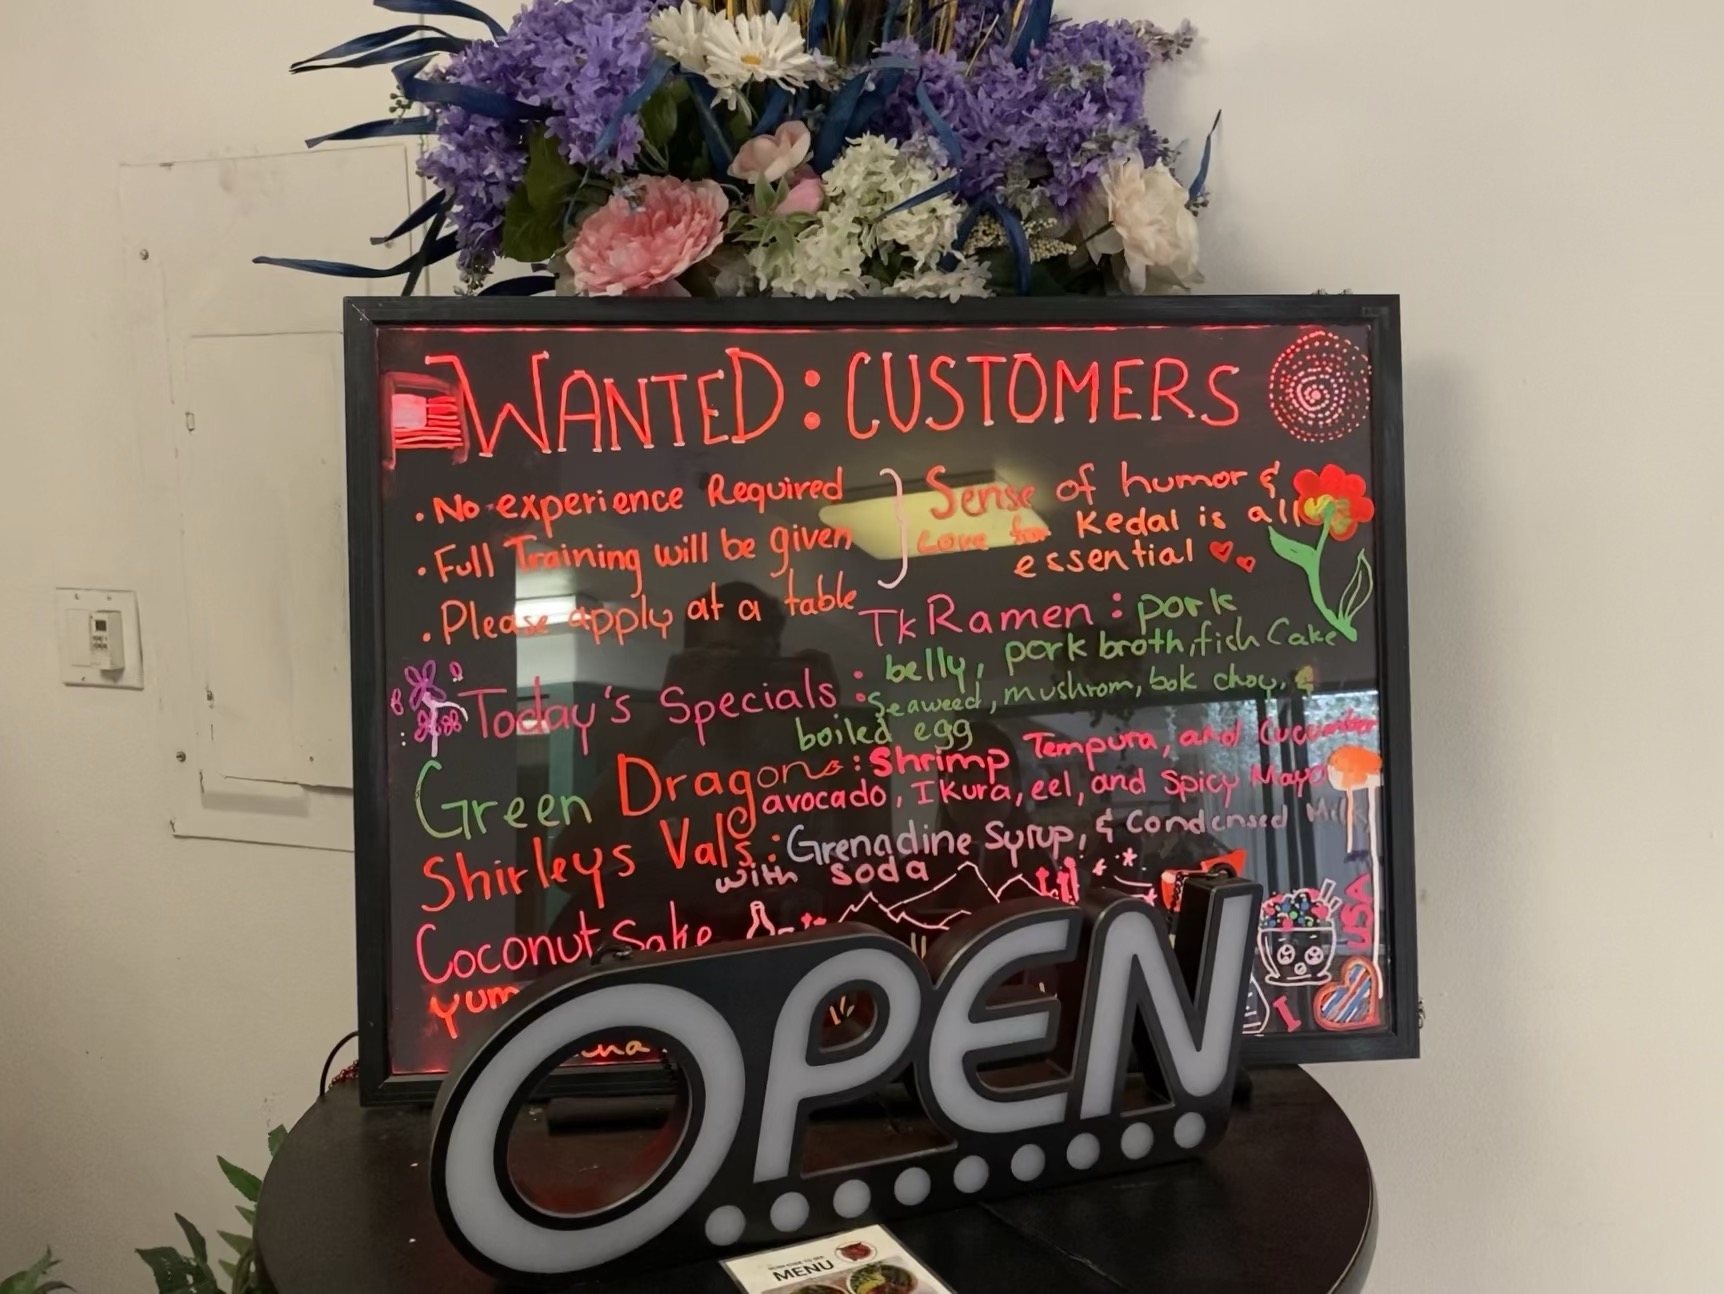 WANTED: CUSTOMERS
• No experience Required
• Full Training will be given
• Please apply at a table
Sense of humor &
Love for Kedal is all
essential
Today's Specials:
TkRamen: pork
belly, pork broth, fish Cake
Seaweed, mushrom, bok choy, &
boiled egg
Green Dragon: Shrimp Tempura, and Cucumber
avocado, Ikura, eel, and Spicy Mayo
Shirleys Vals: Grenadine Syrup, & Condensed Milk
with soda
Coconut Sake
yum
USA
I
OPEN
MENU